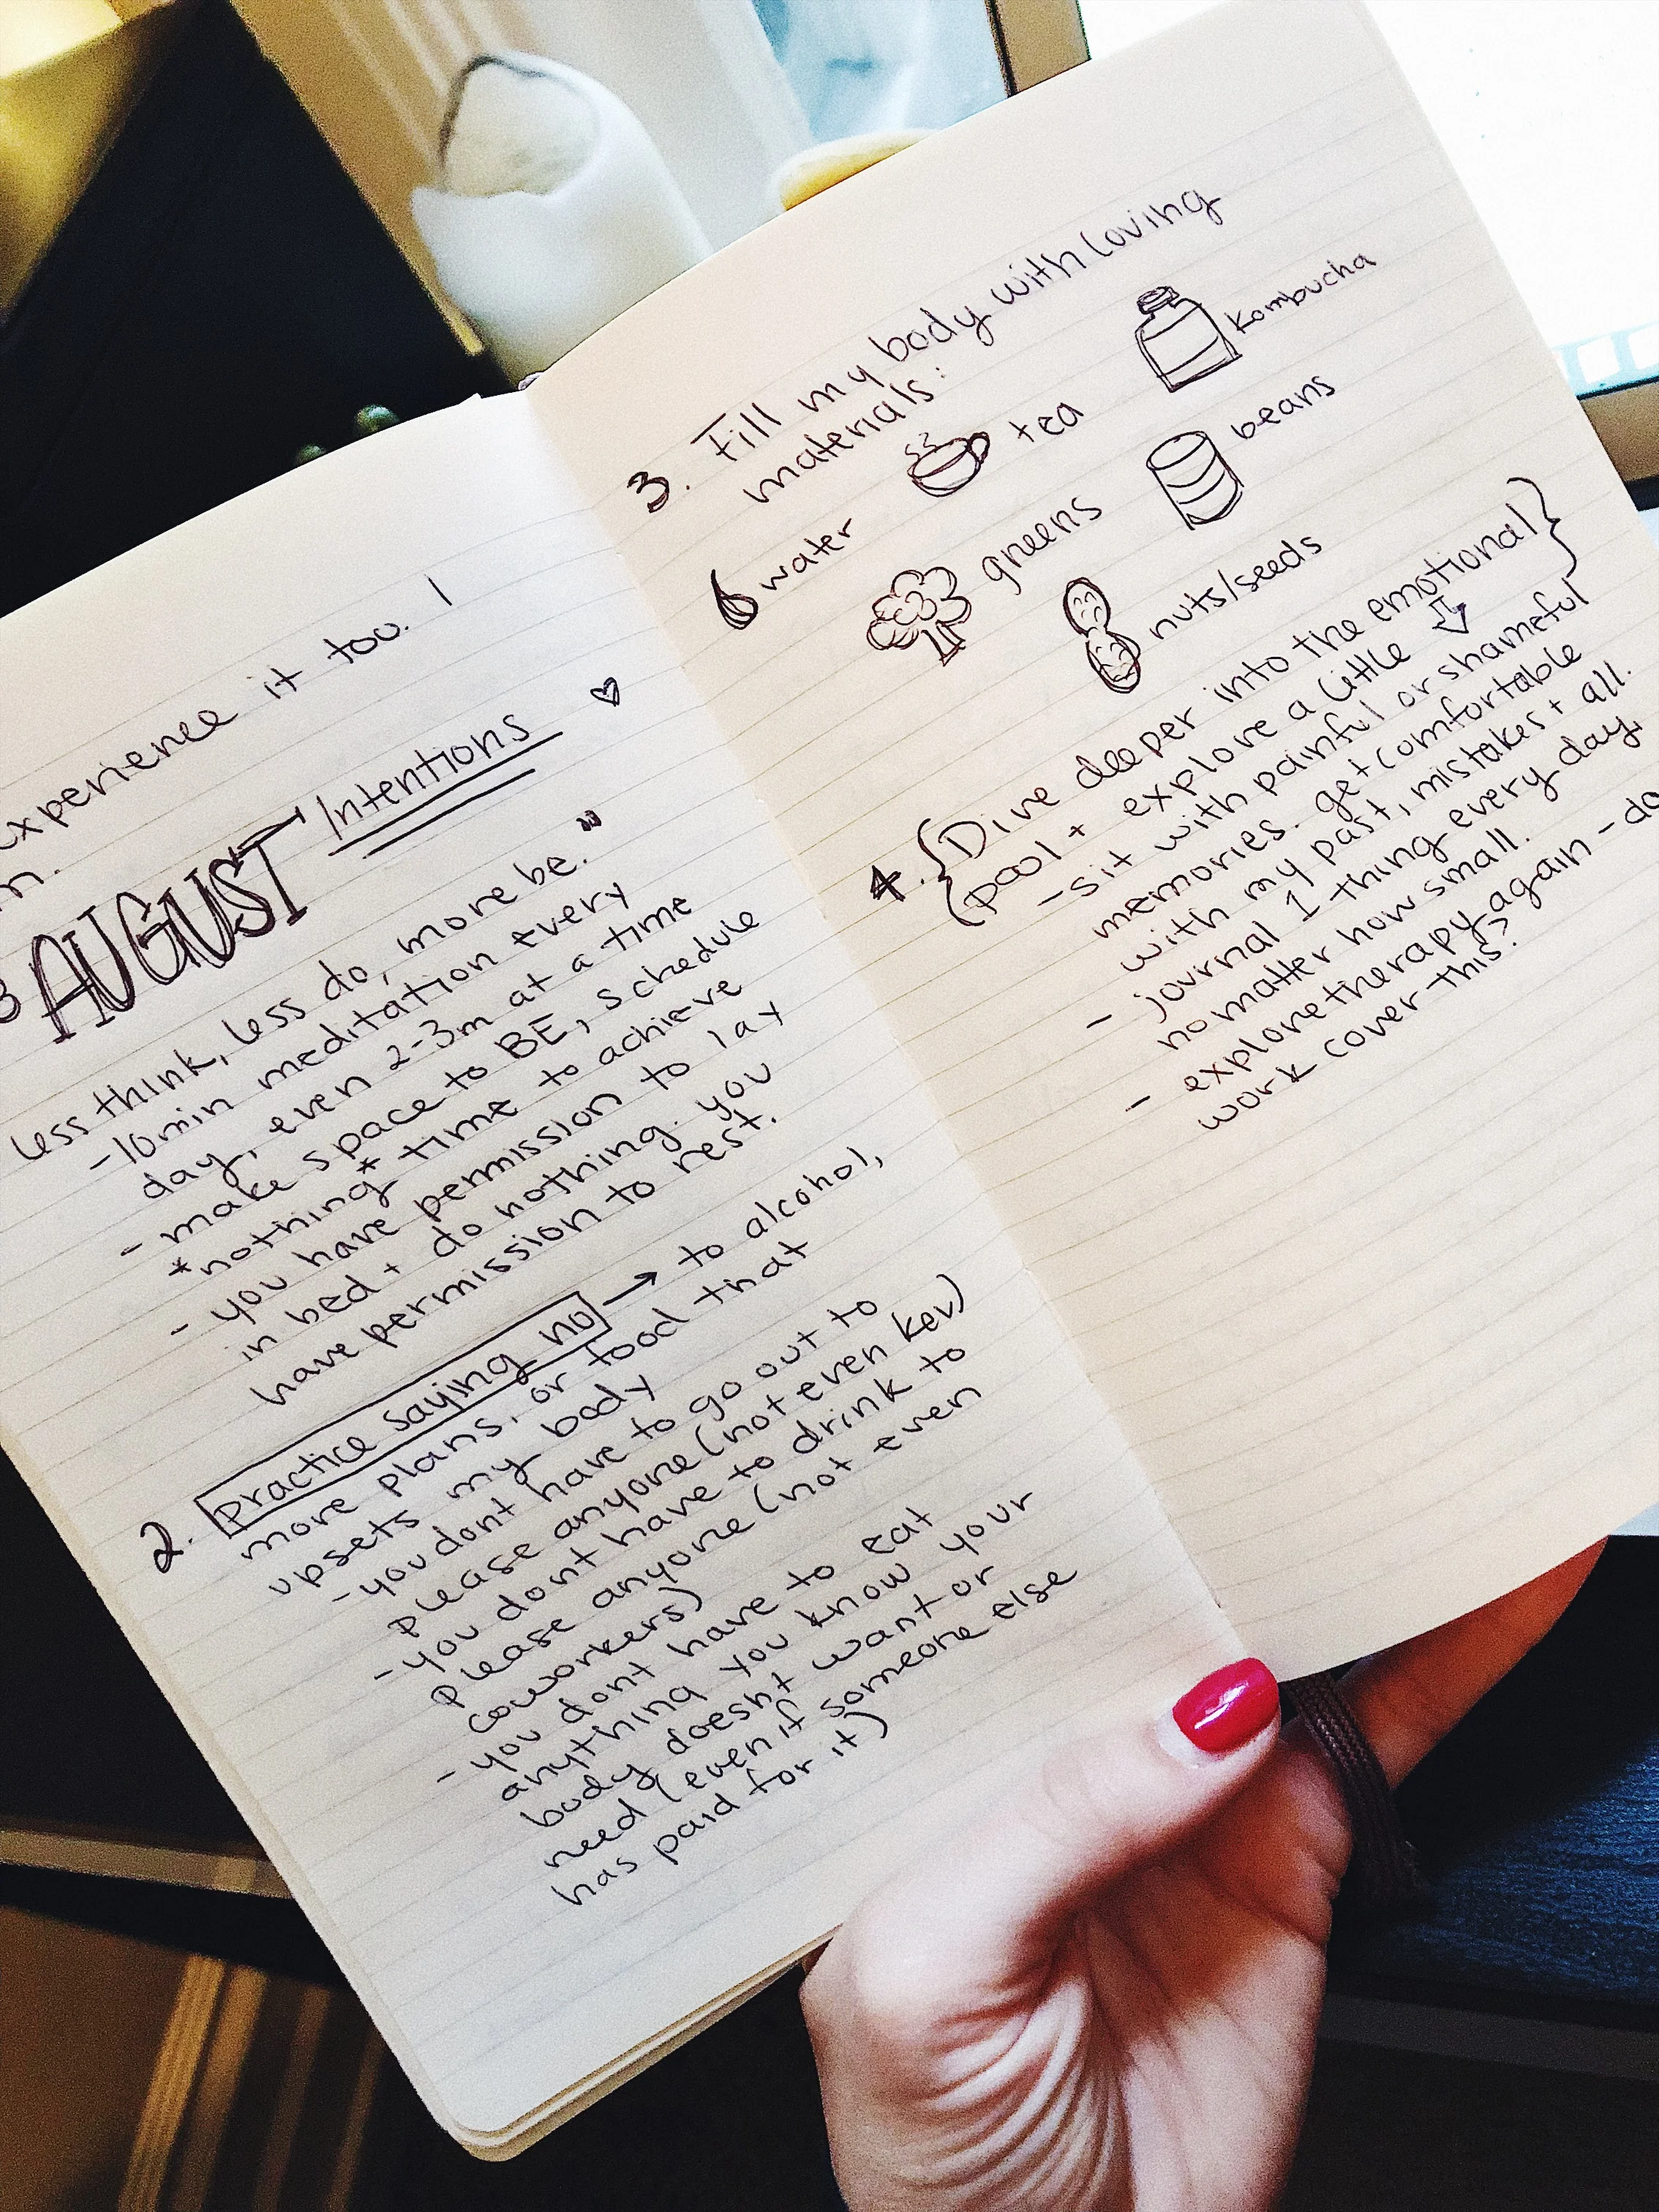 experience it too. I
AUGUST Intentions ♡
less think, less do, more be."
-10min meditation every
day, even 2-3m at a time
- make space to BE, schedule
*nothing* time to achieve
- you have permission to lay
in bed + do nothing. you
have permission to rest.
2. practice saying no → to alcohol,
more plans, or food that
upsets my body
-you dont have to go out to
please anyone (not even kev)
-you dont have to drink to
please anyone (not even
coworkers)
- you dont have to eat
anything you know your
body doesnt want or
need (even if someone else
has paid for it)
3. Fill my body with loving
materials:
water tea kombucha
greens beans
nuts/seeds
4. {Dive deeper into the emotional}
{pool + explore a little ⇩
-sit with painful or shameful
memories. get comfortable
with my past, mistakes + all.
- journal 1 thing every day,
no matter how small.
- explore therapy again - do
work cover this?